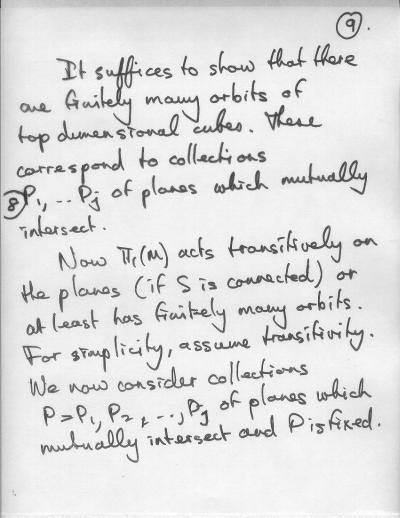 9.
It suffices to show that there
are finitely many orbits of
top dimensional cubes. These
correspond to collections
8 P₁, ... Pj of planes which mutually
intersect.
Now π₁(M) acts transitively on
the planes (if S is connected) or
at least has finitely many orbits.
For simplicity, assume transitivity.
We now consider collections
P=P₁, P₂, ..., Pj of planes which
mutually intersect and P is fixed.